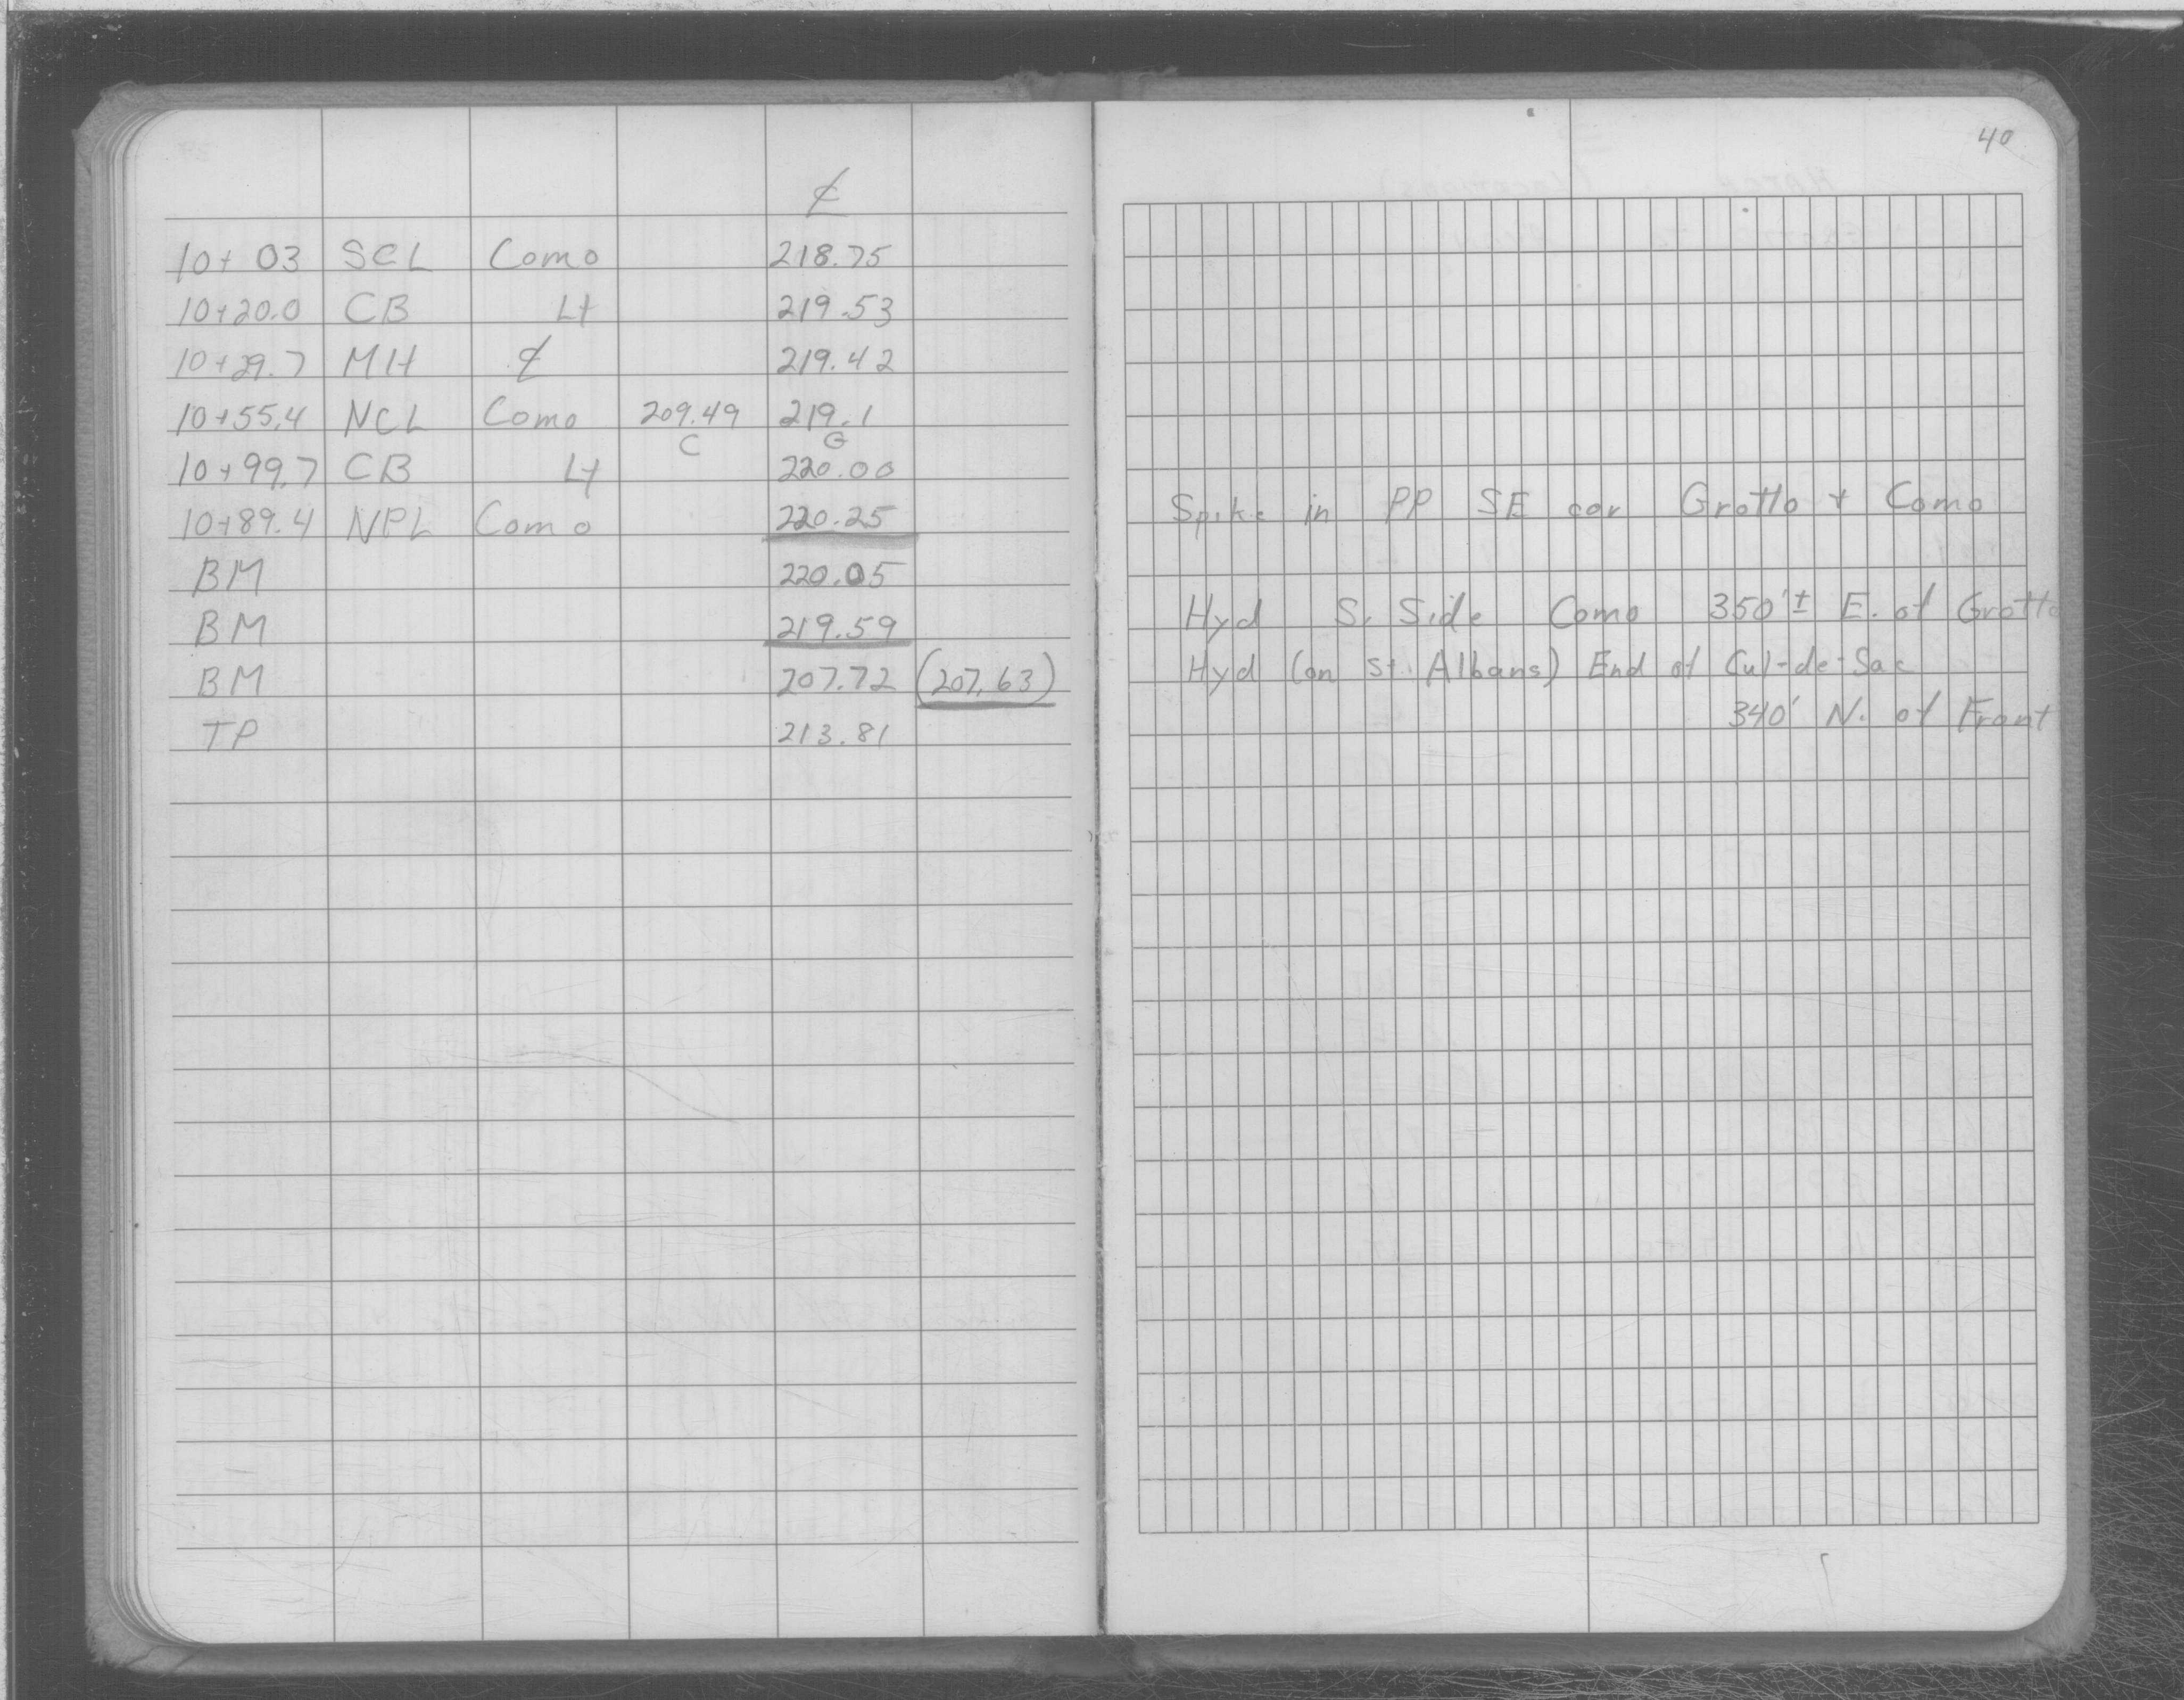 ℄
10+03 SCL Como 218.75
10+20.0 CB Lt 219.53
10+29.7 MH ℄ 219.42
10+55.4 NCL Como 209.49 219.1
C G
10+99.7 CB Lt 220.00
10+89.4 NPL Como 220.25
BM 220.05
BM 219.59
BM 207.72 (207.63)
TP 213.81
40
Spike in PP SE cor Grotto + Como
Hyd S. Side Como 350'± E. of Grotto
Hyd (on St. Albans) End of Cul-de-Sac
340' N. of Front